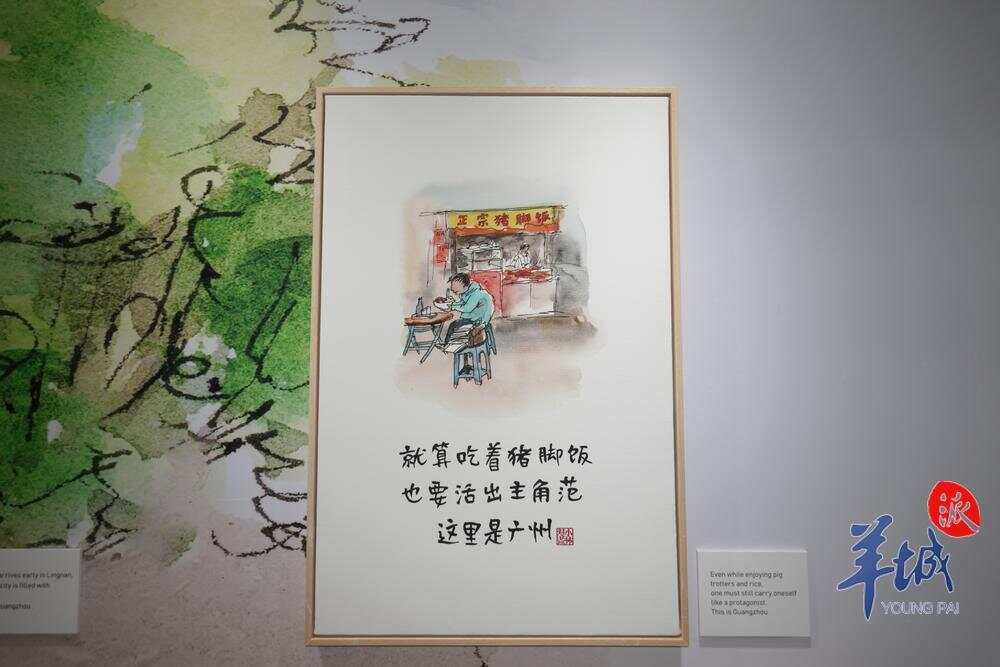 正宗猪脚饭
就算吃着猪脚饭
也要活出主角范
这里是广州
arrives early in Lingnan,
city is filled with
Guangzhou
Even while enjoying pig
trotters and rice,
one must still carry oneself
like a protagonist.
This is Guangzhou
羊城派
YOUNG PAI